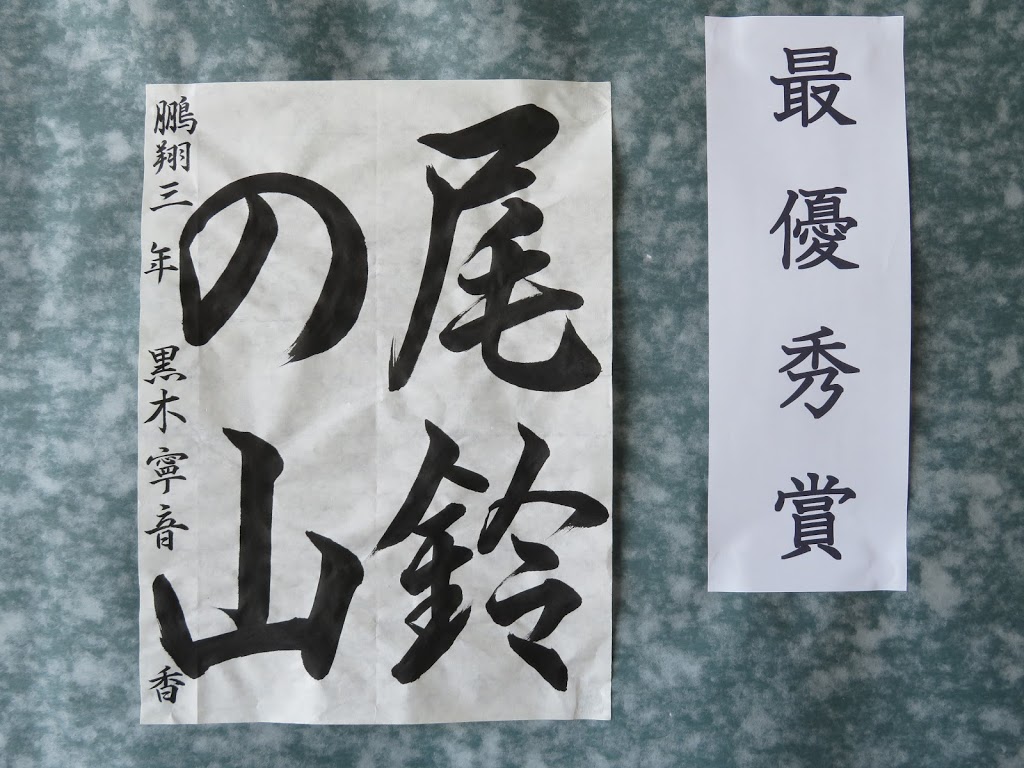 最優秀賞
尾鈴
の山
鵬翔三年 黒木寧音 香